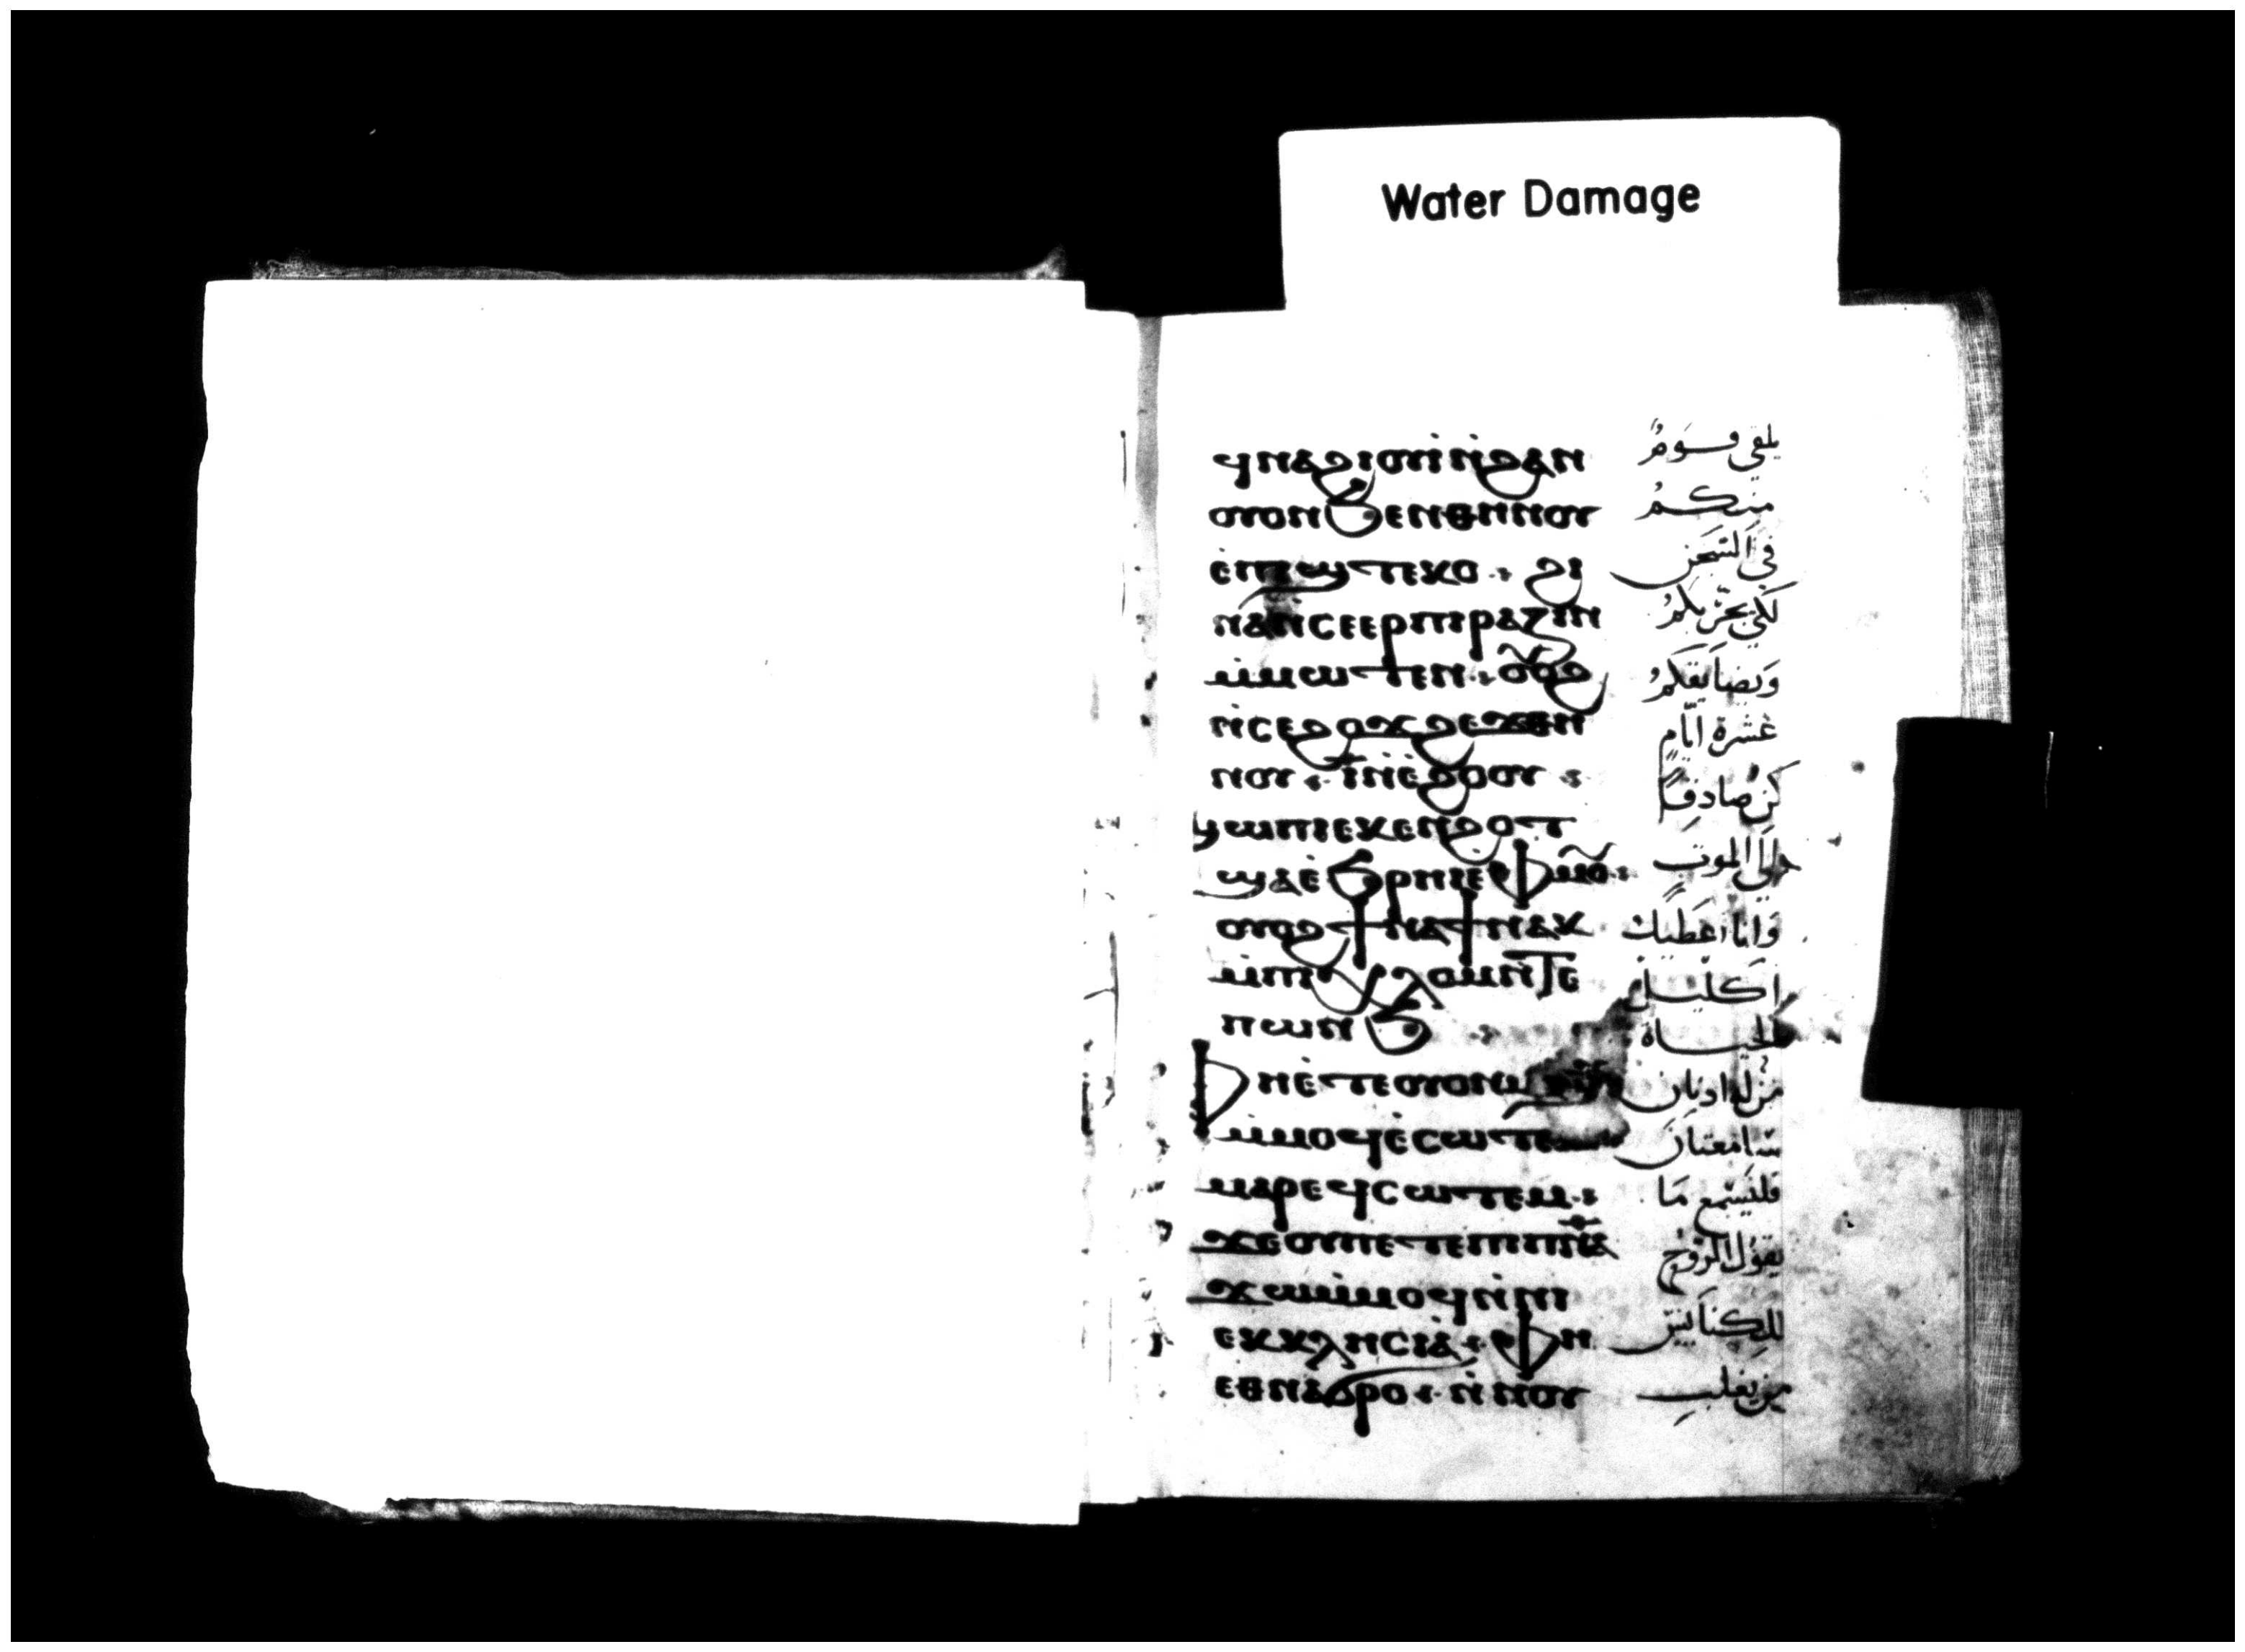 Water Damage
ϥⲛⲁϩⲓⲟⲩⲓ̇ⲛ̇ϩⲁⲛ
ⲟⲩⲟⲛϧⲉⲛⲑⲏⲛⲟⲩ
ⲉ̇ⲡϣⲧⲉⲕⲟ · ϩⲓ
ⲛⲁⲛ̇ⲥⲉⲉⲣⲡⲓⲣⲁⲍⲓⲛ
ⲙ̇ⲙⲱⲧⲉⲛ · ⲟⲩⲟϩ
ⲛ̇ⲥⲉϩⲟϫϩⲉϫⲑⲏ
ⲛⲟⲩ · ⲓ̅ⲛ̇ⲉ̇ϩⲟⲟⲩ :
ϣⲱⲡⲓⲉⲕⲉⲛϩⲟⲧ
ϣⲁⲉ̇ϧⲣⲏⲓⲉⲫⲙⲟⲩ :
ⲟⲩⲟϩϯⲛⲁϯⲛⲁⲕ
ⲙ̇ⲡⲓⲭⲗⲟⲙⲛ̇ⲧⲉ
ⲡⲱⲛϧ
ⲫⲏⲉ̇ⲧⲉⲟⲩⲟⲛ
ⲙ̇ⲙⲟϥⲉ̇ⲥⲱⲧⲉⲙ
ⲙⲁⲣⲉϥⲥⲱⲧⲉⲙ :
ϫⲉⲟⲩⲡⲉⲧⲉⲡⲓⲡⲛ̅ⲁ̅
ϫⲱⲙ̇ⲙⲟϥⲛ̇ⲛⲓ
ⲉⲕⲕⲗⲏⲥⲓⲁ̇ · ⲫⲏ
ⲉⲑⲛⲁϭⲣⲟ · ⲛ̇ⲛⲟⲩ
يلقي قومٌ
منكمُ
في السّجن
لكي يجرّبكمُ
وَيضايقكمُ
عَشرة ايّامٍ
كن صادقاً
الى الموت
وَانا اعَطيك
اكليل
الحياة
من له ادنان
سّامعتانَ
فليَسّمع مَا
يقول الرّوح
للكنايسّ
من يغلب